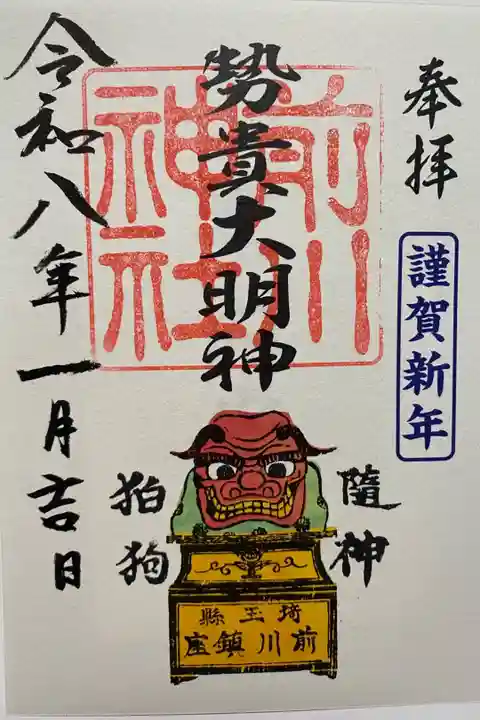 奉拝
謹賀新年
勢貴大明神
前川
神社
令和八年一月吉日
随神
狛狗
埼玉縣
前川鎮座